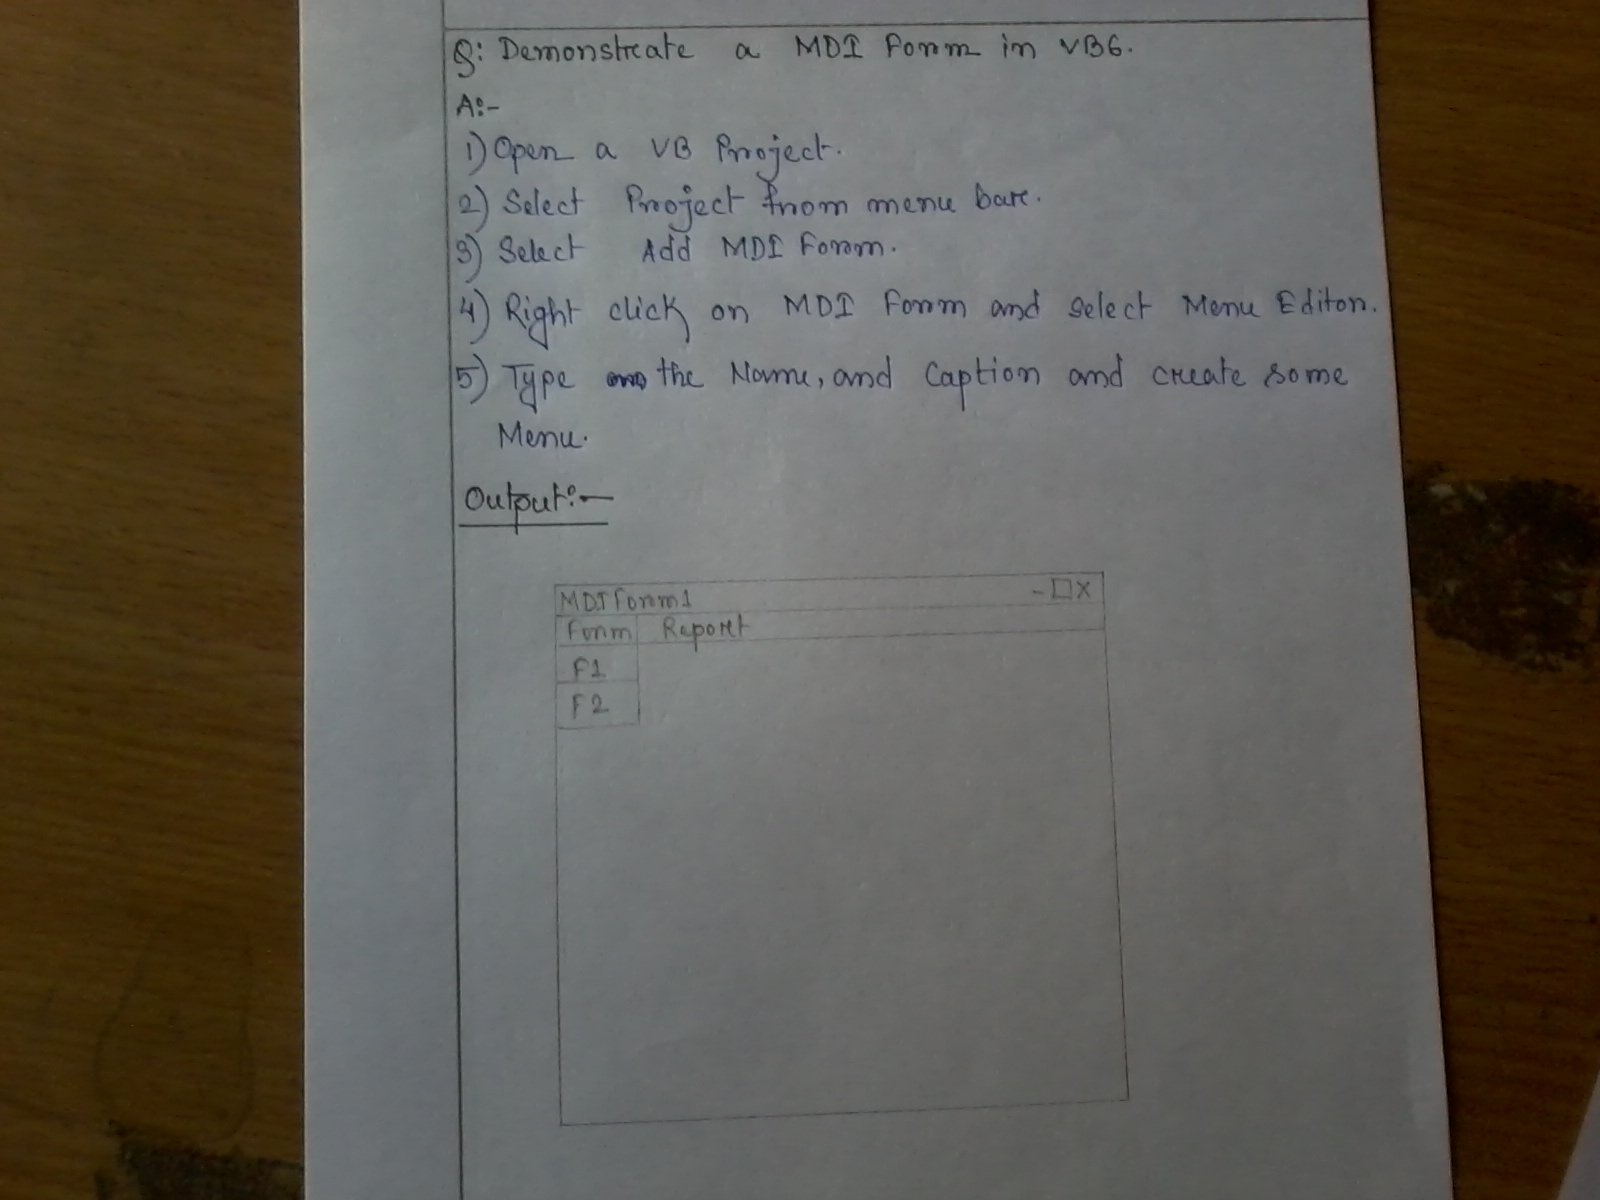 Q: Demonstrate a MDI Form in VB6.
A:-
1) Open a VB Project.
2) Select Project from menu bar.
3) Select Add MDI Form.
4) Right click on MDI Form and select Menu Editor.
5) Type the Name, and Caption and create some
Menu.
Output:-
MDIForm1 -□X
Form Report
F1
F2